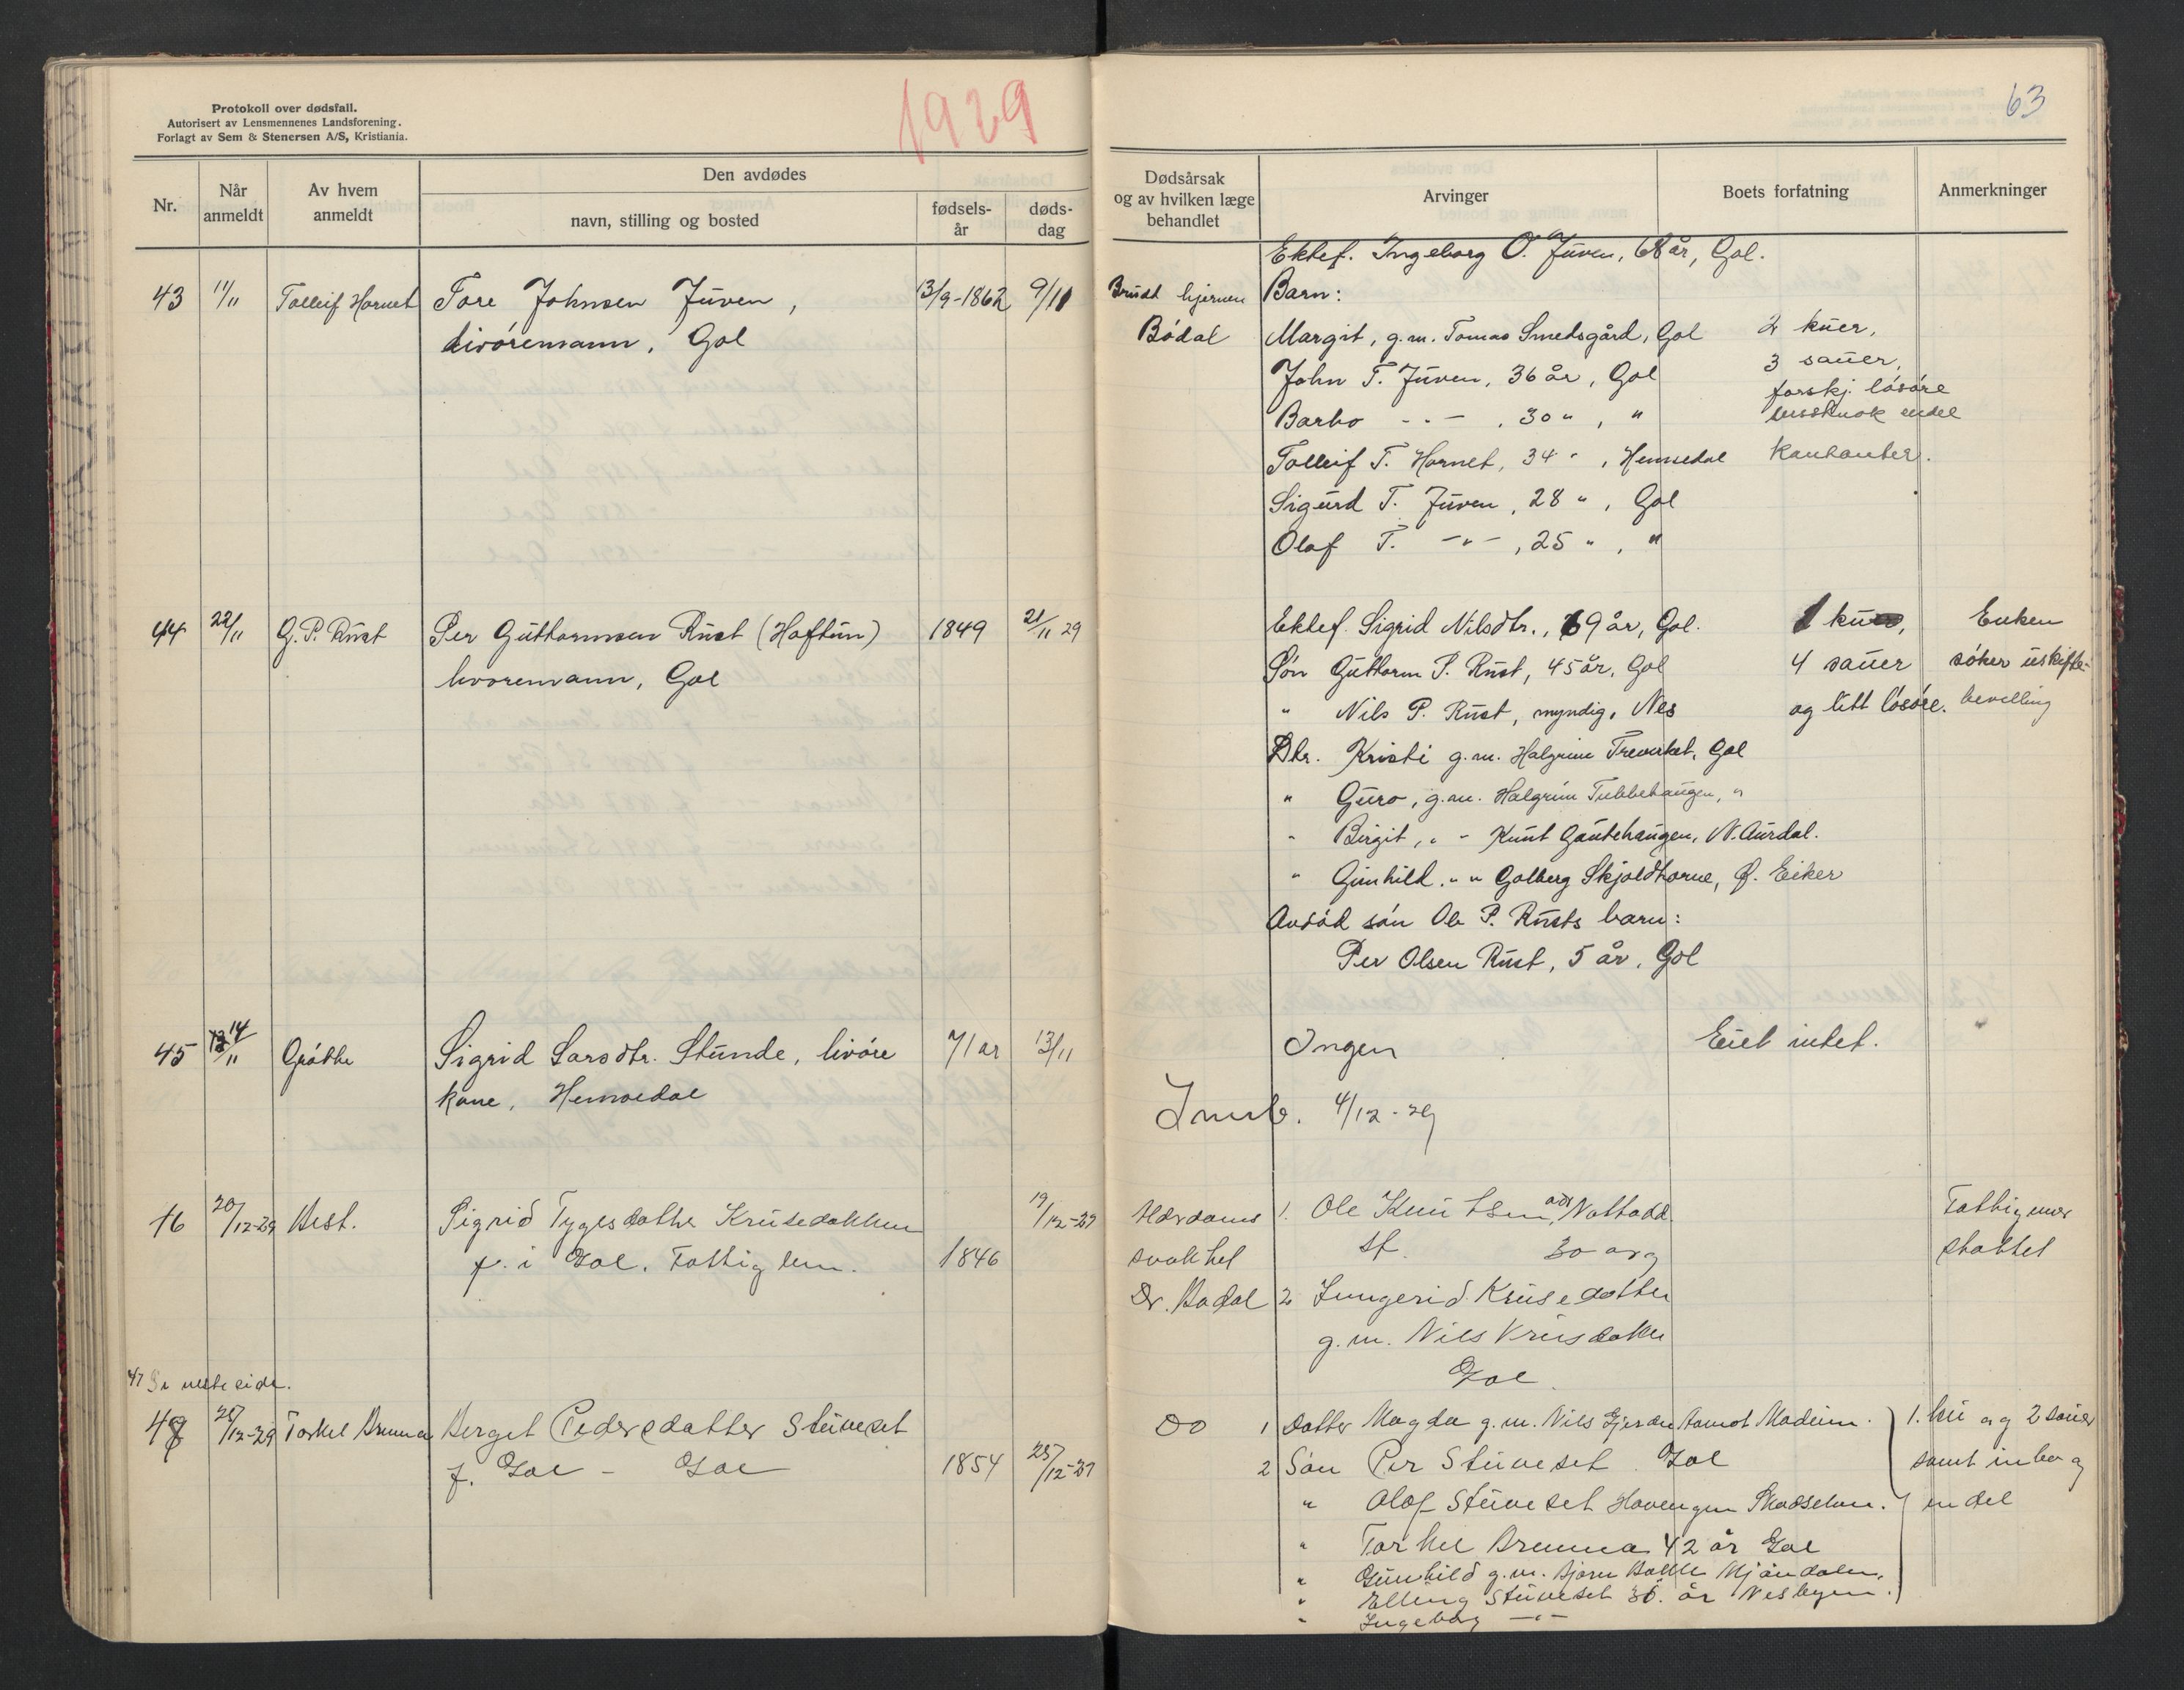 Protokoll over dødsfall.
Autorisert av Lensmennenes Landsforening.
Forlagt av Sem & Stenersen A/S, Kristiania.
1929
63
Nr.
Når anmeldt
Av hvem anmeldt
Den avdødes
navn, stilling og bosted
fødsels-år
døds-dag
Dødsårsak og av hvilken læge behandlet
Arvinger
Boets forfatning
Anmerkninger
Ektef. Ingeborg O. Juven, 68 år, Gol.
43 11/11 Tolleif Hornet Tore Johnsen Juven, 13/9-1862 9/11 Barn:
livöremann, Gol Bödal Margit, g.m. Tomas Smedsgård, Gol 2 kuer,
John T. Juven, 36 år, Gol 3 sauer,
forskj. lösöre
Barbo - " - , 30 " , "
Tolleif T. Hornet, 34 " , Hemsedal
Sigurd T. Juven, 28 " , Gol
Olaf T. - " - , 25 " , "
44 22/11 G. P. Rust Per Guttormsen Rust (Haftun) 1849 21/11 29 Ektef. Sigrid Nilsdtr., 69 år, Gol. 1 ku, Enken
livöremann, Gol Sön Guttorm P. Rust, 45 år, Gol 4 sauer söker uskifte-
" Nils P. Rust, myndig, Nes og litt lösöre. bevilling
Dtr. Kristi g.m. Halgrim Trevirket, Gol
" Guro, g.m. Halgrim Tubbehaugen, "
" Birgit, " " Knut Gautehaugen, N. Aurdal.
" Gunhild. " " Golberg Skjoldtorne, Ø. Eiker
Avdöd sön Ole P. Rusts barn:
Per Olsen Rust, 5 år, Gol
45 14/11 Gröthe Sigrid Larsdtr. Stunde, livöre 71 år 13/11 Ingen Eiet intet.
kone, Hemsedal
4/12-29
46 20/12-29 Best. Sigrid Tygesdatter Krusedokken 19/12-29 Alderdoms 1. Ole Knutsen, Nottodd. Fattigunder
f. i Gol. Fattiglem. 1846 svakhet st. 30 år støttet
Dr. Bødal 2 Jungerid Krusedotter
g.m. Nils Krusdokke
Gol
47 Se neste side.
48 28/12-29 Torkel Brenna Berget Pedersdatter Stuveset Do 1 Datter Magda g.m. Nils Gjerden Aamot Modum. 1. ku og 2 sauer
f. Gol - Gol 1854 25/12-29 2 Sön Per Stuveset Gol samt inbo og
" Olaf Stuveset Hovengen en del
" Torkel Brenna 42 år Gol
" Gunhild g.m. Bjørn Bakke Mjöndalen.
" Elling Stuveset 30. år Nesbyen.
" Ingeborg - " -